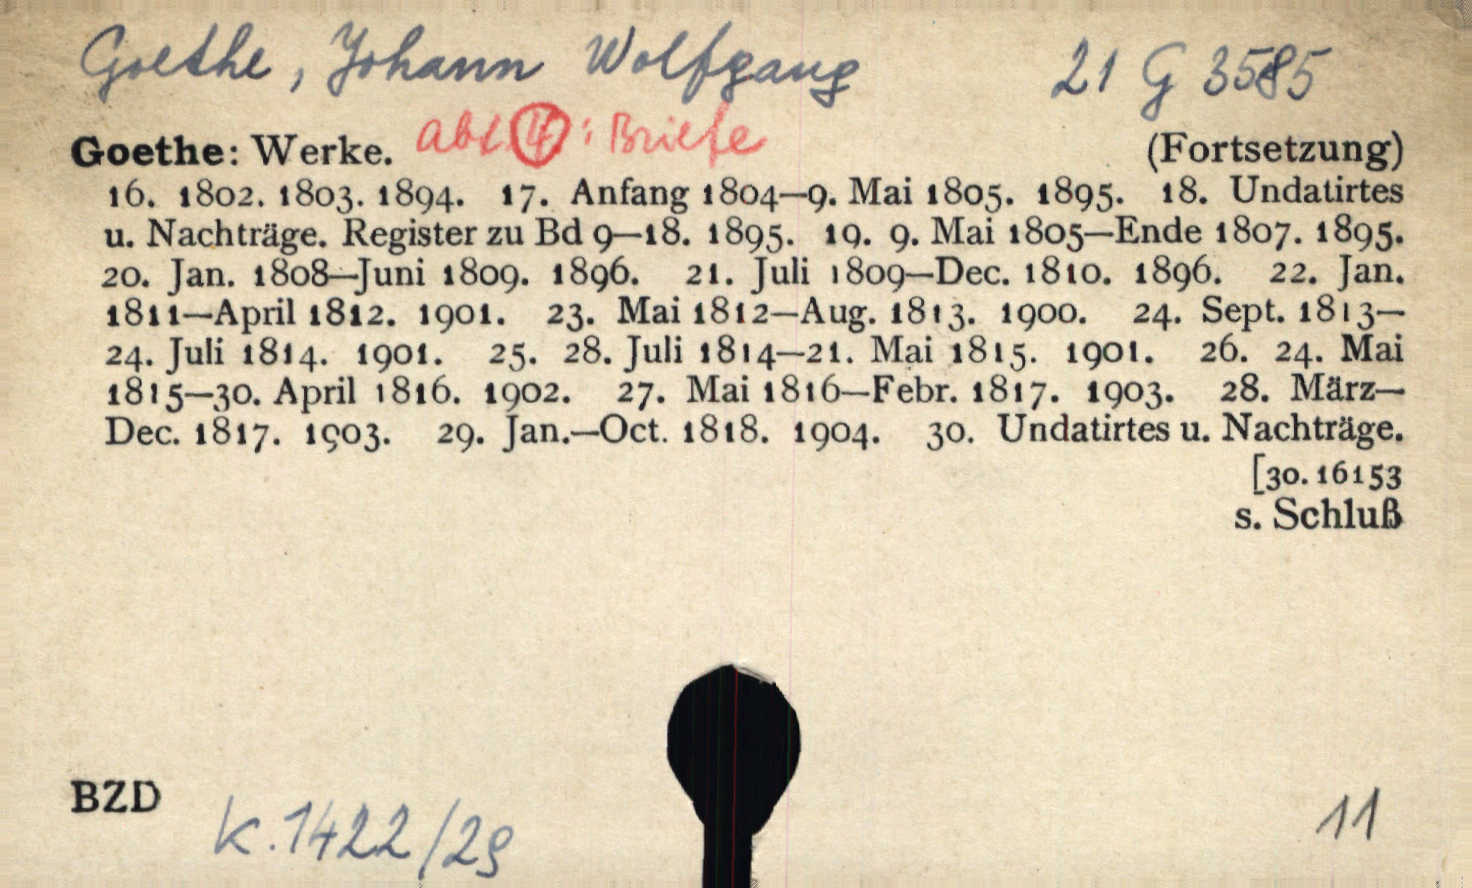 Goethe, Johann Wolfgang 21 G 3585
Abt. 4: Briefe
Goethe: Werke. (Fortsetzung)
16. 1802. 1803. 1894. 17. Anfang 1804—9. Mai 1805. 1895. 18. Undatirtes
u. Nachträge. Register zu Bd 9—18. 1895. 19. 9. Mai 1805—Ende 1807. 1895.
20. Jan. 1808—Juni 1809. 1896. 21. Juli 1809—Dec. 1810. 1896. 22. Jan.
1811—April 1812. 1901. 23. Mai 1812—Aug. 1813. 1900. 24. Sept. 1813—
24. Juli 1814. 1901. 25. 28. Juli 1814—21. Mai 1815. 1901. 26. 24. Mai
1815—30. April 1816. 1902. 27. Mai 1816—Febr. 1817. 1903. 28. März—
Dec. 1817. 1903. 29. Jan.—Oct. 1818. 1904. 30. Undatirtes u. Nachträge.
[30. 16153
s. Schluß
BZD
K. 1422/29
11